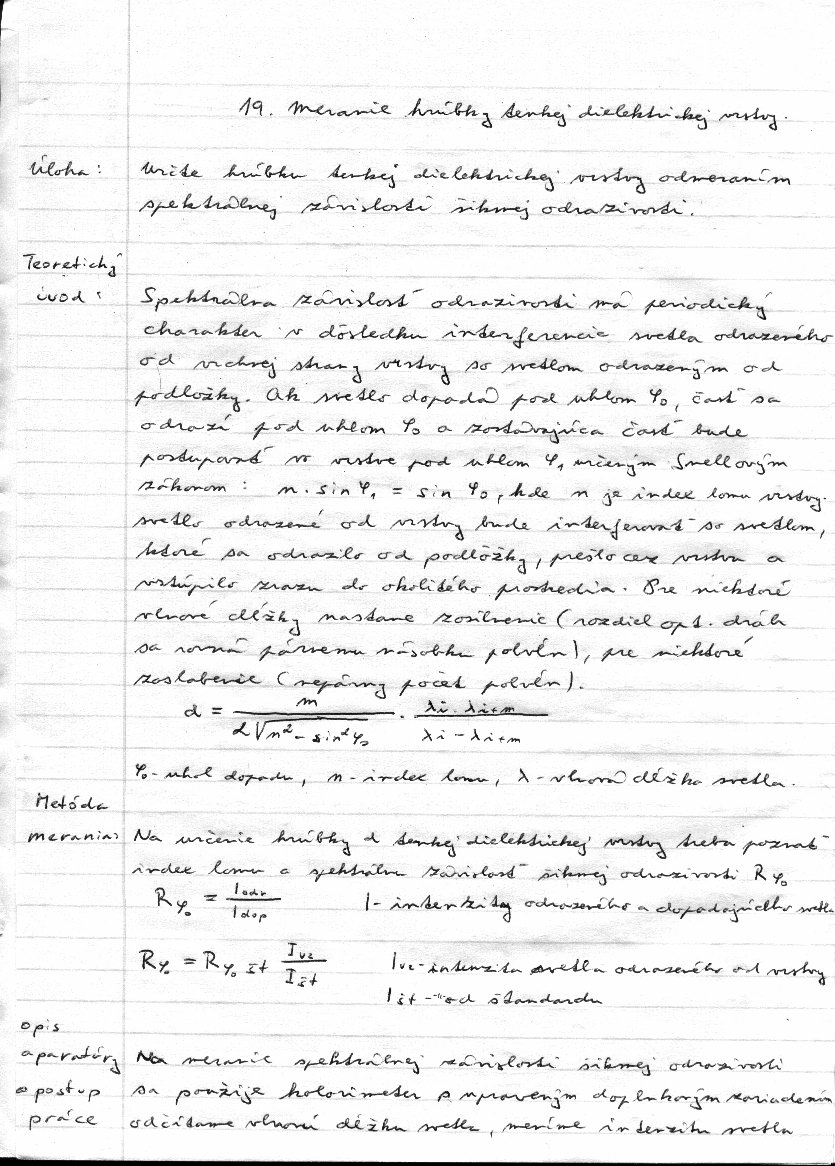 19. Meranie hrúbky tenkej dielektrickej vrstvy.
Úloha: Určte hrúbku tenkej dielektrickej vrstvy odmeraním
spektrálnej závislosti šikmej odrazivosti.
Teoretický
úvod: Spektrálna závislosť odrazivosti má periodický
charakter v dôsledku interferencie svetla odrazeného
od vrchnej strany vrstvy so svetlom odrazeným od
podložky. Ak svetlo dopadá pod uhlom φ₀, časť sa
odrazí pod uhlom φ₀ a zostávajúca časť bude
postupovať vo vrstve pod uhlom φ₁ určeným Snellovým
zákonom: n.sinφ₁ = sinφ₀, kde n je index lomu vrstvy.
svetlo odrazené od vrstvy bude interferovať so svetlom,
ktoré sa odrazilo od podlôžky, prešlo cez vrstvu a
vstúpilo zrazu do okolitého prostredia. Pre niektoré
vlnové dĺžky nastane zosilnenie (rozdiel opt. dráh
sa rovná párnemu násobku polvĺn), pre niektoré
zoslabenie (nepárny počet polvĺn).
d = m / 2√(n² - sin²φ₀) . λi . λi+m / λi - λi+m
φ₀ - uhol dopadu, n - index lomu, λ - vlnová dĺžka svetla.
Metóda
merania: Na určenie hrúbky d tenkej dielektrickej vrstvy treba poznať
index lomu a spektrálnu závislosť šikmej odrazivosti Rφ₀
Rφ₀ = Iodr / Idop I - intenzity odrazeného a dopadajúceho svetla
Rφ₀ = Rφ₀ št Ivz / Išt Ivz - intenzita svetla odrazeného od vrstvy
Išt - " - od štandardu
opis
aparatúry Na meranie spektrálnej závislosti šikmej odrazivosti
a postup sa použije kolorimeter s upraveným doplnkovým zariadením
práce odčítame vlnovú dĺžku svetla, meríme intenzitu svetla